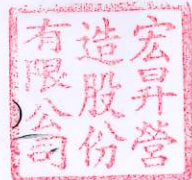 宏昇營
造股份
有限公司